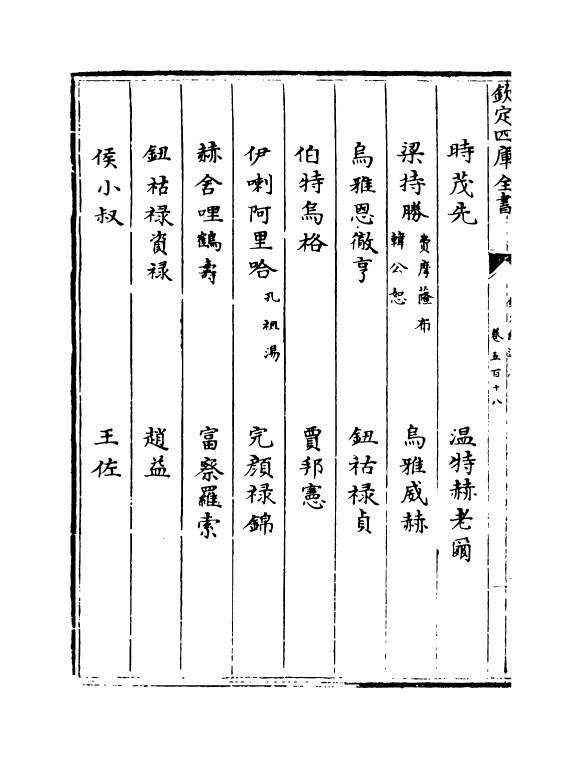 欽定四庫全書
卷五百十八
時茂先 温特赫老爾
梁持勝 費摩薩布 韓公恕 烏雅威赫
烏雅恩徹亨 鈕祜禄貞
伯特烏格 賈邦憲
伊喇阿里哈 孔祖湯 完顔禄錦
赫舍哩鶴壽 富察羅索
鈕祜禄資禄 趙益
侯小叔 王佐